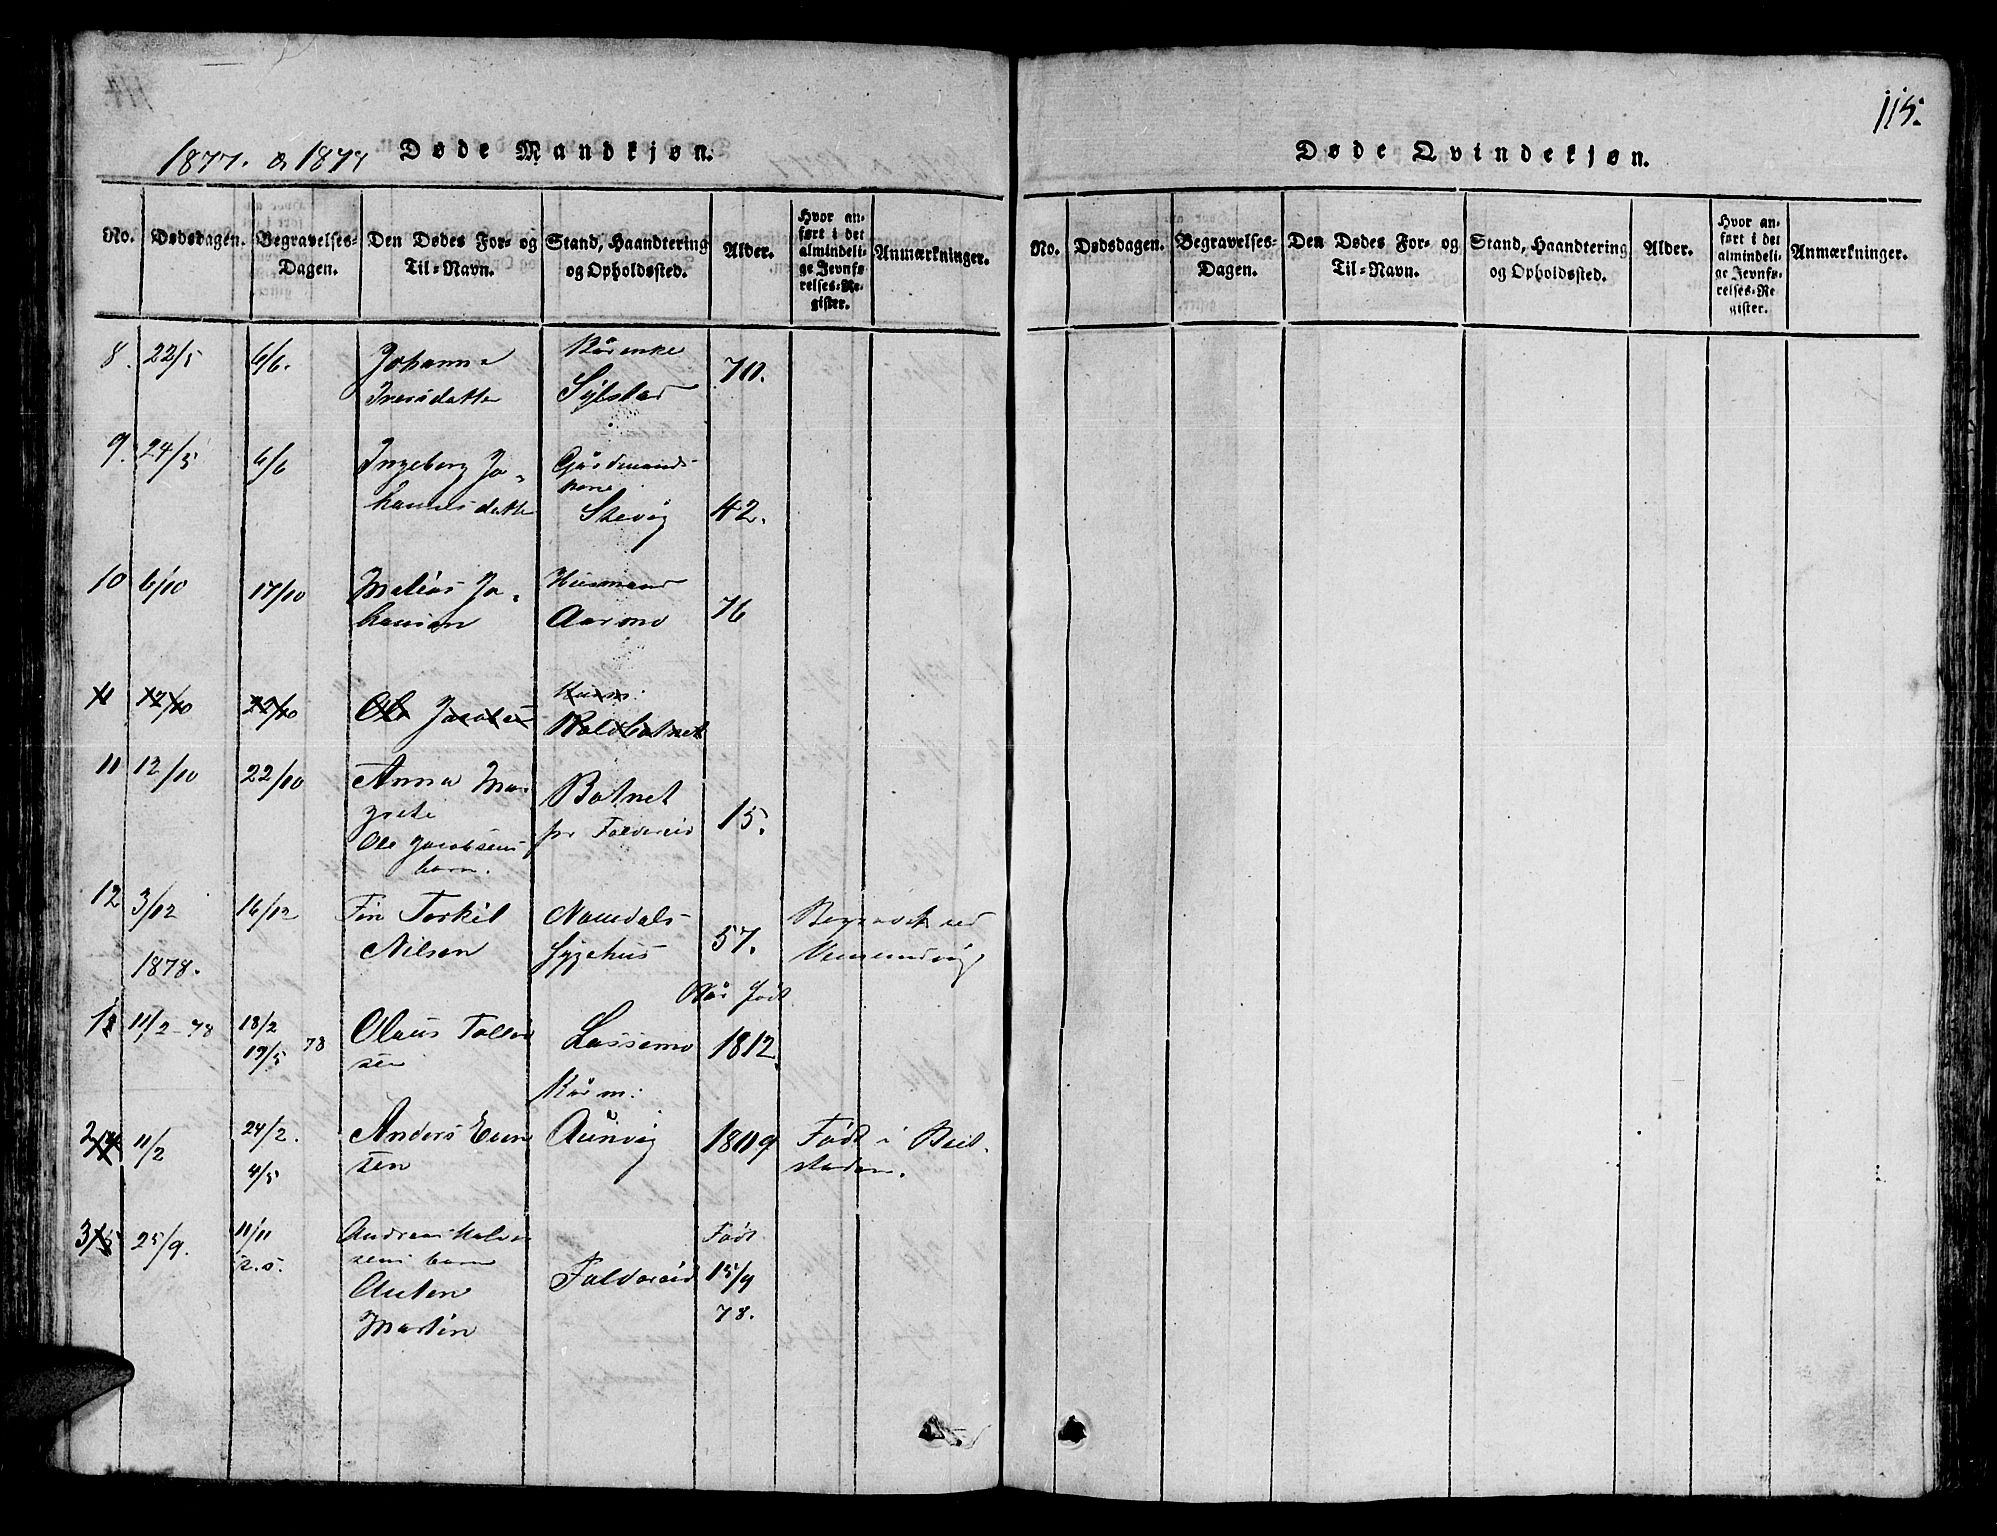 115.
1877. & 1878 Døde Mandkjøn.
No. Dødsdagen. Begravelses-Dagen. Den Dødes For- og Til-Navn. Stand, Haandtering og Opholdssted. Alder. Hvor anført i det almindelige Jevnførelses-Register. Anmærkninger.
8. 22/5 6/6. Johanna Kårenke
Iversdatter 70.
9. 24/5 6/6 Ingeborg Jo- Gårdmands
hannesdatter kone
42.
10 6/10 17/10 Matias Jo- Husmand
hansen Aarmo 76
11 12/10 22/10 Ole Jacobsen
11 12/10 22/10 Anna Mar- Botnet
grete for Foldereid 15.
Ole Jacobsens
barn.
12 3/12 16/12 Torkil Namdals
Nilsen Sygehus 57. Begravet ved
1878.
Når Født
11/2-78 18/2 Olaus Lassemo 1812.
19/5 78 sen
Kårm:
2 11/2 24/2. Anders Aunvig 1809 Født i Beit-
4/5 sen staden.
3 25/9. 11/11 Andreas Født
s.s. sens barn
Anton Foldereid 15/9
Martin 78.
Døde Qvindekjøn.
No. Dødsdagen. Begravelses-Dagen. Den Dødes For- og Til-Navn. Stand, Haandtering og Opholdssted. Alder. Hvor anført i det almindelige Jevnførelses-Register. Anmærkninger.